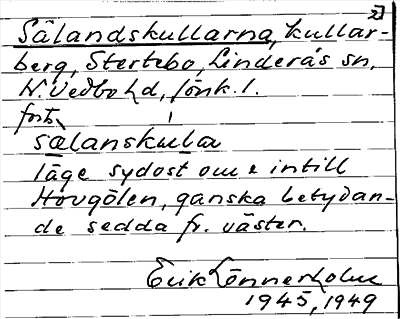 2)
Sälandskullarna, kullar-
berg, Stertebo, Linderås sn,
N. Vedbo hd, Jönk. l.
forts.
sälanskula
läge sydost om & intill
Hovgölen, ganska betydan-
de sedda fr. väster.
Erik Lönnerholm
1945, 1949